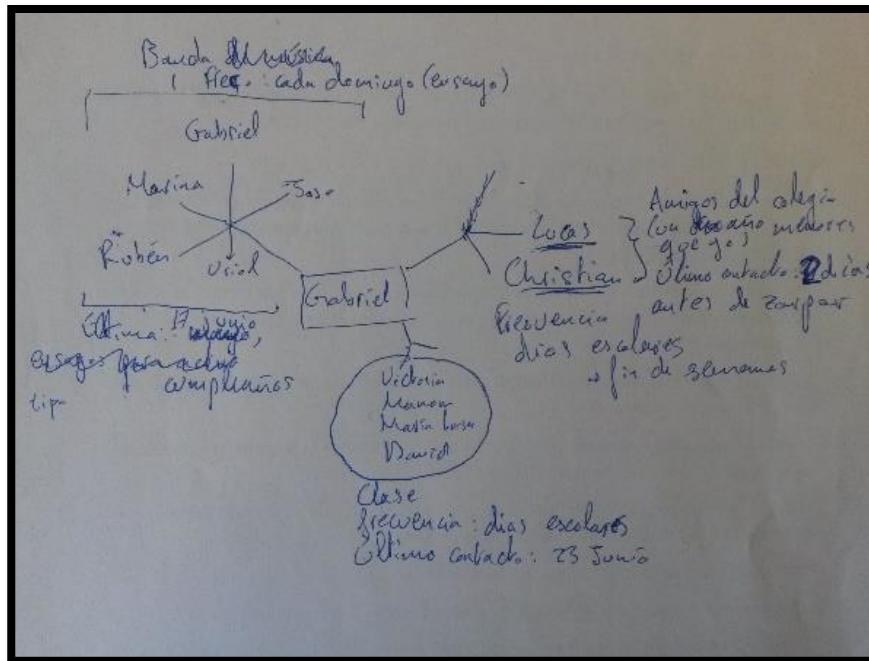 Banda
Frec.: cada domingo (ensayo)
Gabriel
Marina
Jose
Rubén
Uriol
Última: 17 junio,
cumpleaños
Gabriel
Lucas
Christian
Amigos del colegio
(un año menores
que yo)
Último contacto: 2 días
antes de zarpar
Frecuencia
días escolares
fin de semanas
Victoria
Manon
María Luisa
David
Clase
frecuencia: días escolares
Último contacto: 23 Junio